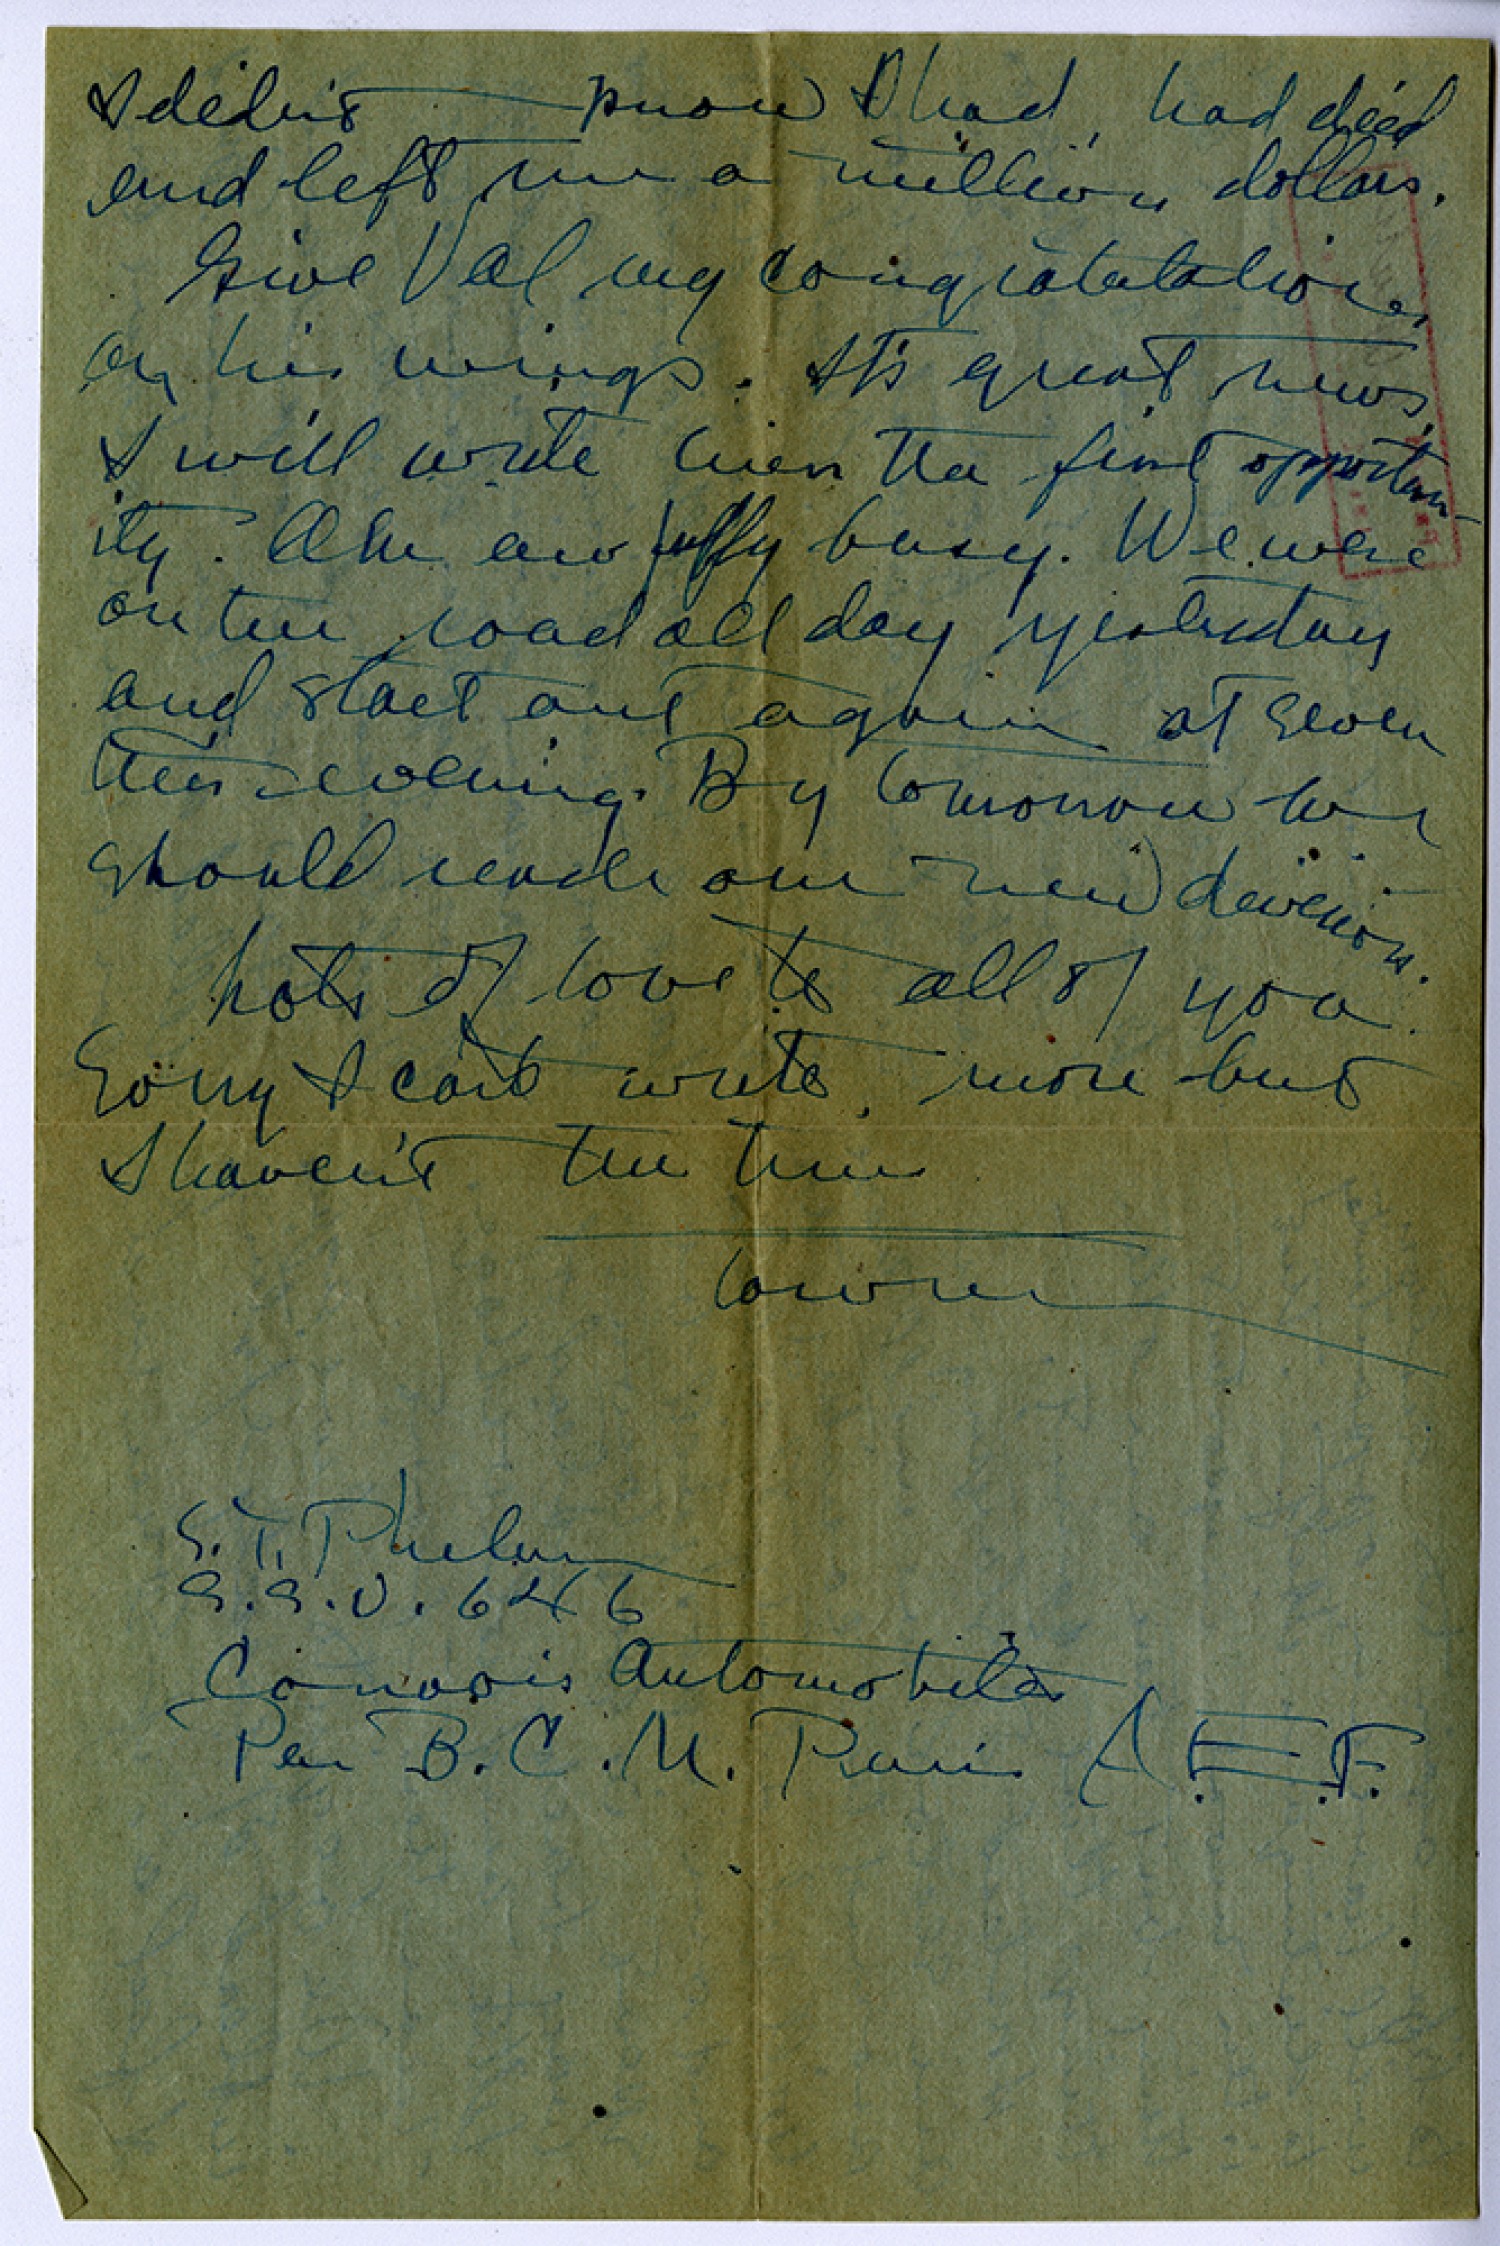 I didn't know I had, had died
and left me a million dollars.
Give Val my congratulations
on his wings. It's great news.
I will write him the first opportun-
ity. Am awfully busy. We were
on the road all day yesterday
and start out again at seven
this evening. By tomorrow we
should reach our new division.
Lots of love to all of you.
Sorry I can't write more but
I haven't the time
S. T. Phelan
S.S.U. 646
Convois Automobiles
Par B.C.M. Paris A.E.F.